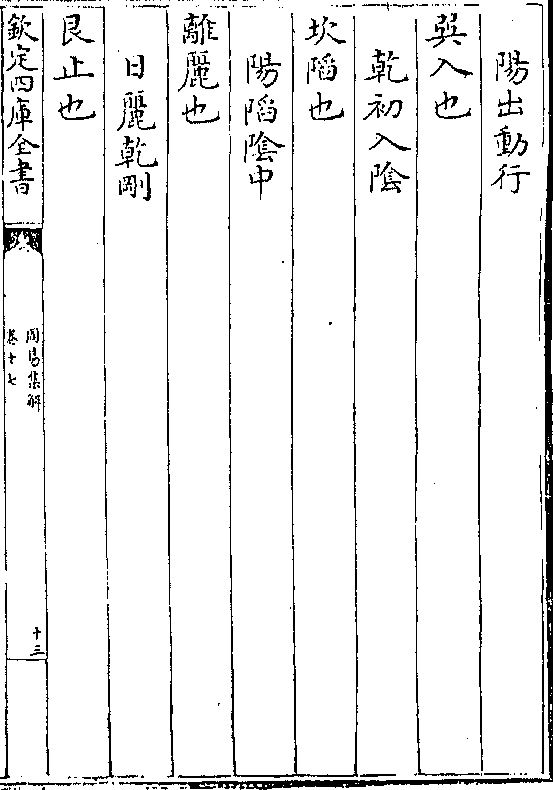 陽出動行
巽入也
乾初入陰
坎䧟也
陽䧟陰中
離麗也
日麗乾剛
艮止也
欽定四庫全書
周易集解
卷十七
十三